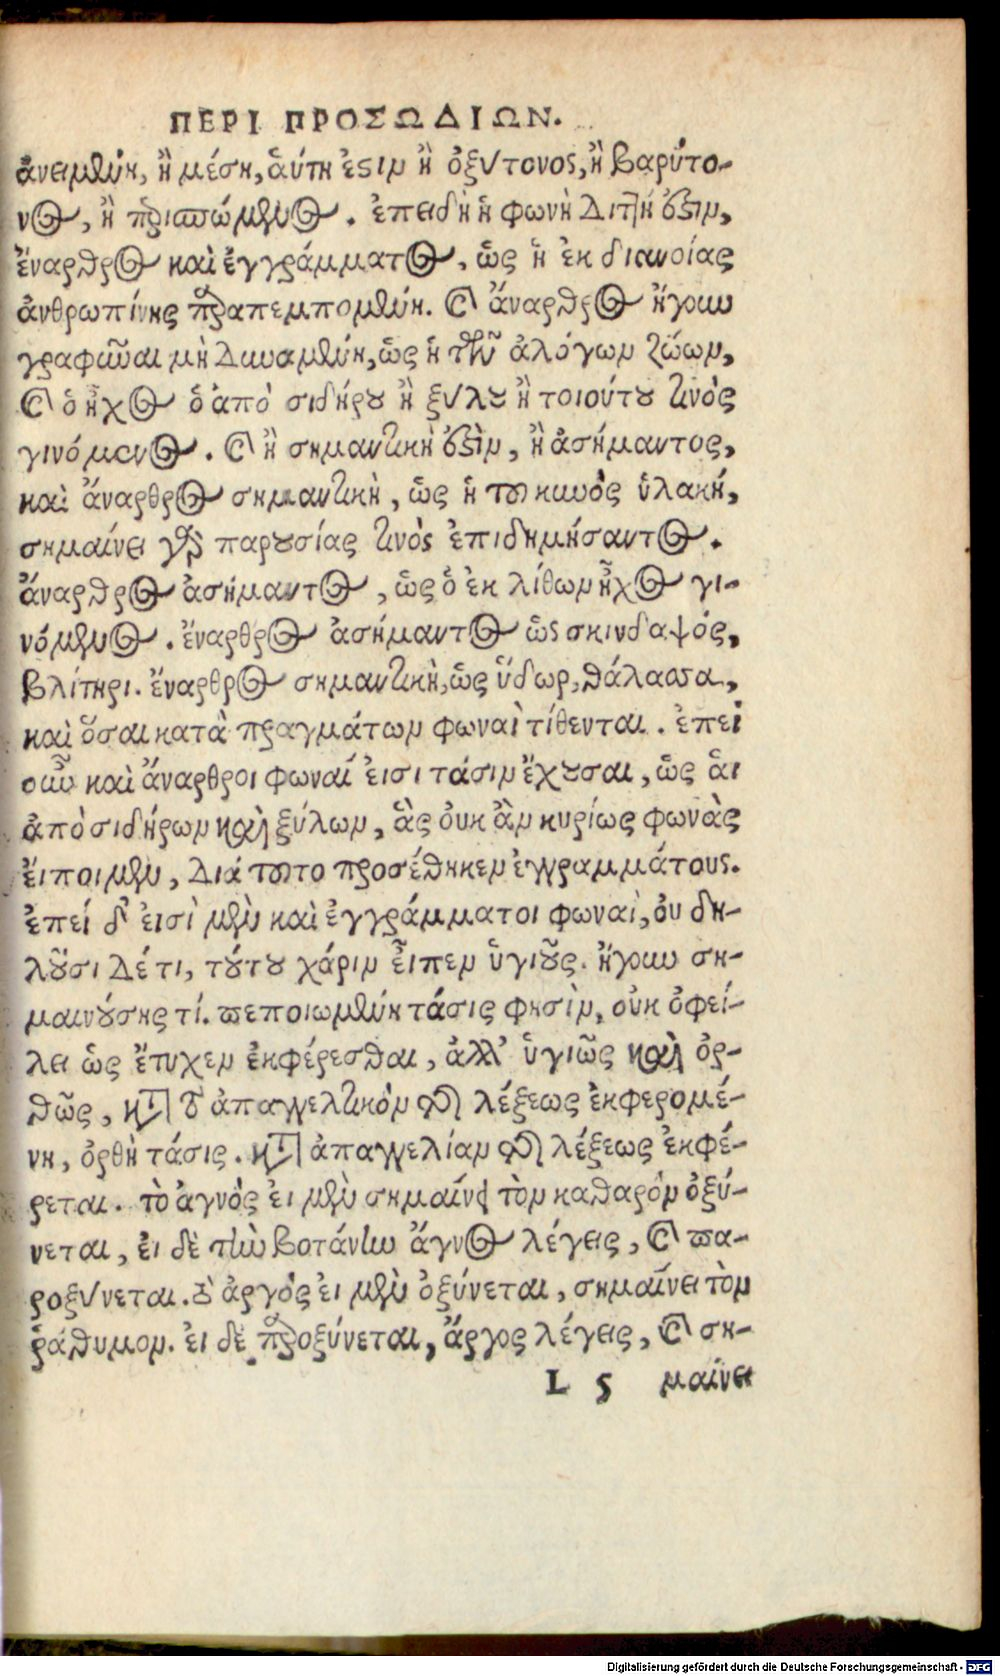 ΠΕΡΙ ΠΡΟΣΩΔΙΩΝ.
ἀνειμένη, ἢ μέση, ἀύτη ἐστιν ἢ ὀξύτονος, ἢ βαρύτο-
νος, ἢ περισπώμενος. ἐπειδὴ ἡ φωνὴ διττή ἐστιν,
ἔναρθρος καὶ ἐγγράμματος, ὧς ἡ ἐκ διανοίας
ἀνθρωπίνης παραπεμπομένη. καὶ ἄναρθρος ἤγουν
γραφῆναι μὴ δυναμένη, ὧς ἡ τῶν ἀλόγων ζώων,
καὶ ὁ ἦχος ὁ ἀπὸ σιδήρου ἢ ξύλου ἢ τοιούτου τινὸς
γινόμενος. καὶ ἢ σημαντικὴ ἐστὶν, ἢ ἀσήμαντος,
καὶ ἄναρθρος σημαντικὴ, ὧς ἡ τοῦ κυνὸς ὑλακή,
σημαίνει γὰρ παρουσίας τινὸς ἐπιδημήσαντος.
ἄναρθρος ἀσήμαντος, ὧς ὁ ἐκ λίθων ἦχος γι-
νόμενος. ἔναρθρος ἀσήμαντος ὧς σκινδαψός,
βλίτηρι. ἔναρθρος σημαντικὴ, ὧς ὕδωρ, θάλασσα,
καὶ ὅσαι κατὰ πραγμάτων φωναὶ τίθενται. ἐπεὶ
οὖν καὶ ἄναρθροι φωναί ἐισι τάσιν ἔχουσαι, ὧς ἁι
ἀπὸ σιδήρων καὶ ξύλων, ἃς ὀυκ ἂν κυρίως φωνὰς
ἔιποιμεν, διά τοῦτο προσέθηκεν ἐγγραμμάτους.
ἐπεί δ' ἐισὶ μὲν καὶ ἐγγράμματοι φωναὶ, ὀυ δη-
λοῦσι δέ τι, τούτου χάριν ἶειπεν ὑγιοῦς. ἤγουν ση-
μαινούσης τί. πεποιωμένη τάσις φησὶν, οὐκ ὀφεί-
λει ὡς ἔτυχεν ἐκφέρεσθαι, ἀλλ' ὑγιῶς καὶ ὀρ-
θῶς, κατὰ τὸ ἀπαγγελτικὸν τῆς λέξεως ἐκφερομέ-
νη, ὀρθὴ τάσις. κατὰ ἀπαγγελίαν τῆς λέξεως ἐκφέ-
ρεται. τὸ ἁγνὸς ἐι μὲν σημαίνει τὸν καθαρὸν ὀξύ-
νεται, ἐι δὲ τὴν βοτάνην ἄγνος λέγεις, καὶ πα-
ροξύνεται. τὸ ἀργὸς ἐι μὲν ὀξύνεται, σημαίνει τὸν
ῥάθυμον. ἐι δὲ παροξύνεται, ἄργος λέγεις, καὶ ση-
L 5 μαίνει
Digitalisierung gefördert durch die Deutsche Forschungsgemeinschaft - DFG